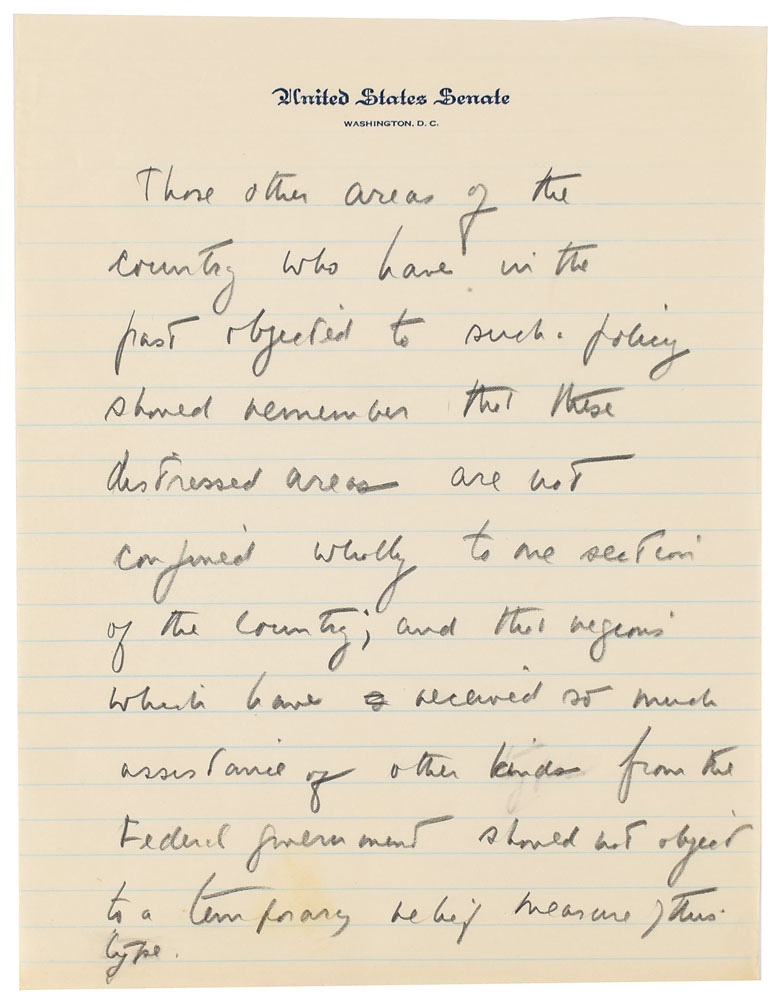 United States Senate
WASHINGTON, D. C.
Those other areas of the
country who have in the
past objected to such a policy
should remember that these
distressed areas are not
confined wholly to one section
of the country; and that regions
which have received so much
assistance of other kinds from the
Federal government should not object
to a temporary relief measure of this
type.